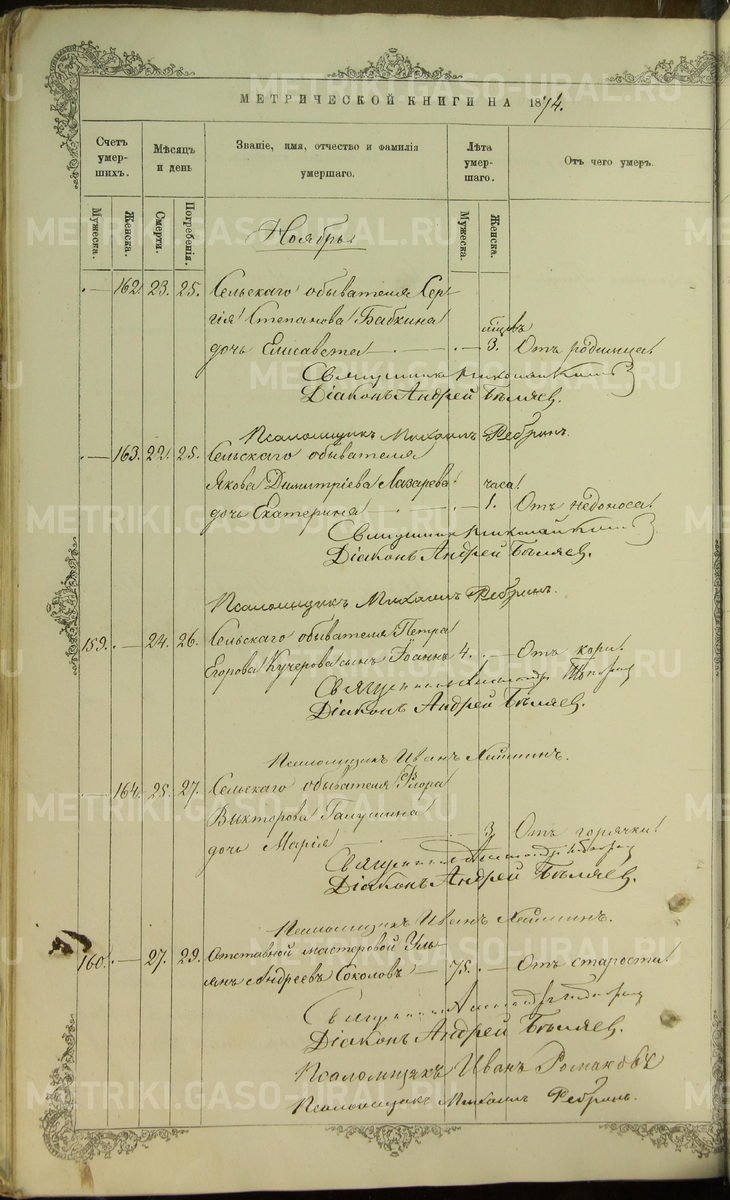 МЕТРИЧЕСКОЙ КНИГИ НА 1874.
Счетъ умер- шихъ.
Мѣсяцъ и день
Званіе, имя, отчество и фамилія умершаго.
Лѣта умер- шаго.
Отъ чего умеръ.
Мужеска.
Женска.
Смерти.
Погребенія.
Мужеска.
Женска.
Ноябрь
— 162. 23. 25. Сельскаго обывателя Сер-
гія Степанова Бабкина мѣсяцъ
дочь Елисавета — 3. Отъ родимца.
Священникъ Николай
Діаконъ Андрей Бѣляев.
Псаломщикъ Михаилъ Ребринъ.
— 163. 22. 25. Сельскаго обывателя
Якова Димитріева Лазарева часа
дочь Екатерина — 1. Отъ недоноса.
Священникъ Николай
Діаконъ Андрей Бѣляев.
Псаломщикъ Михаилъ Ребринъ.
159. — 24. 26. Сельскаго обывателя Петра
Егорова Кучерова сынъ Іоаннъ 4. — Отъ кори.
Священникъ Александръ
Діаконъ Андрей Бѣляев.
Псаломщикъ Иванъ
— 164. 25. 27. Сельскаго обывателя Флора
Викторова Галушина
дочь Марія — 3 Отъ горячки.
Священникъ Александръ
Діаконъ Андрей Бѣляев.
Псаломщикъ Иванъ
160. — 27. 29. Отставной мастеровой Уль-
янъ Андреевъ Соколовъ — 75. — Отъ старости.
Священникъ Александръ
Діаконъ Андрей Бѣляев.
Псаломщикъ Иванъ Романовъ
Псаломщикъ Михаилъ Ребринъ.
METRIKI.GASO-URAL.RU